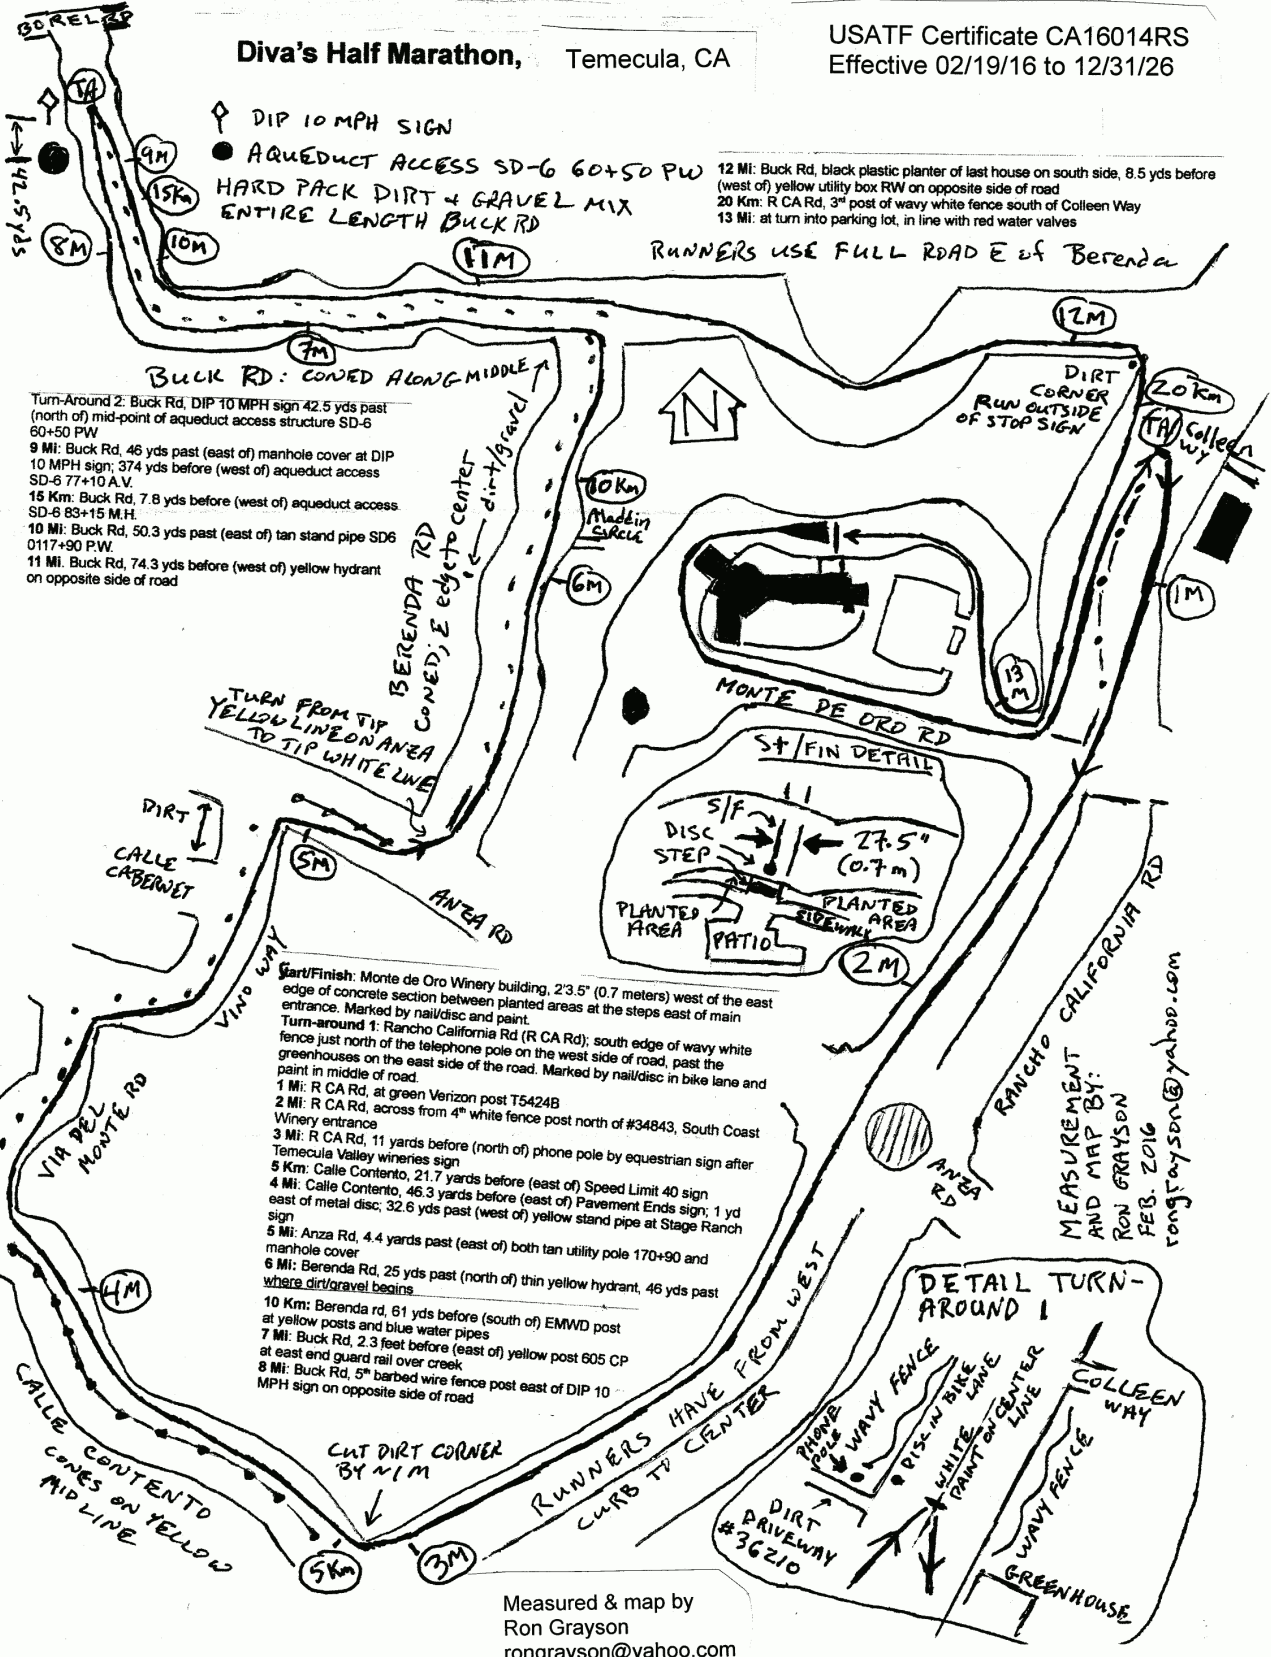 BOREL RD
Diva's Half Marathon, Temecula, CA
USATF Certificate CA16014RS
Effective 02/19/16 to 12/31/26
TA
DIP 10 MPH SIGN
AQUEDUCT ACCESS SD-6 60+50 PW
HARD PACK DIRT + GRAVEL MIX
ENTIRE LENGTH BUCK RD
42.5 YPS
9M
15Km
8M
10M
11M
12 Mi: Buck Rd, black plastic planter of last house on south side, 8.5 yds before
(west of) yellow utility box RW on opposite side of road
20 Km: R CA Rd, 3rd post of wavy white fence south of Colleen Way
13 Mi: at turn into parking lot, in line with red water valves
RUNNERS USE FULL ROAD E of Berenda
12M
7M
BUCK RD: CONED ALONG MIDDLE
DIRT
CORNER
RUN OUTSIDE
OF STOP SIGN
20Km
TA
Colleen
WY
N
Turn-Around 2: Buck Rd, DIP 10 MPH sign 42.5 yds past
(north of) mid-point of aqueduct access structure SD-6
60+50 PW
9 Mi: Buck Rd, 46 yds past (east of) manhole cover at DIP
10 MPH sign; 374 yds before (west of) aqueduct access
SD-6 77+10 A.V.
15 Km: Buck Rd, 7.8 yds before (west of) aqueduct access
SD-6 83+15 M.H.
10 Mi: Buck Rd, 50.3 yds past (east of) tan stand pipe SD6
0117+90 P.W.
11 Mi. Buck Rd, 74.3 yds before (west of) yellow hydrant
on opposite side of road
BERENDA RD
CONED; E edge to center
dirt/gravel
10Km
Maddin
CIRCLE
6M
1M
13
M
MONTE DE ORO RD
TURN FROM TIP
YELLOW LINE ON ANZA
TO TIP WHITE LINE
DIRT
CALLE
CABERNET
5M
ANZA RD
VINO WAY
St/FIN DETAIL
S/F
DISC
STEP
27.5"
(0.7m)
PLANTED
AREA
PATIO
PLANTED
AREA
SIDEWALK
2M
RANCHO CALIFORNIA RD
VIA DEL
MONTE RD
Start/Finish: Monte de Oro Winery building, 2'3.5" (0.7 meters) west of the east
edge of concrete section between planted areas at the steps east of main
entrance. Marked by nail/disc and paint.
Turn-around 1: Rancho California Rd (R CA Rd); south edge of wavy white
fence just north of the telephone pole on the west side of road, past the
greenhouses on the east side of the road. Marked by nail/disc in bike lane and
paint in middle of road.
1 Mi: R CA Rd, at green Verizon post T5424B
2 Mi: R CA Rd, across from 4th white fence post north of #34843, South Coast
Winery entrance
3 Mi: R CA Rd, 11 yards before (north of) phone pole by equestrian sign after
Temecula Valley wineries sign
5 Km: Calle Contento, 21.7 yards before (east of) Speed Limit 40 sign
4 Mi: Calle Contento, 46.3 yards before (east of) Pavement Ends sign; 1 yd
east of metal disc; 32.6 yds past (west of) yellow stand pipe at Stage Ranch
sign
5 Mi: Anza Rd, 4.4 yards past (east of) both tan utility pole 170+90 and
manhole cover
6 Mi: Berenda Rd, 25 yds past (north of) thin yellow hydrant, 46 yds past
where dirt/gravel begins
10 Km: Berenda rd, 61 yds before (south of) EMWD post
at yellow posts and blue water pipes
7 Mi: Buck Rd, 2.3 feet before (east of) yellow post 605 CP
at east end guard rail over creek
8 Mi: Buck Rd, 5th barbed wire fence post east of DIP 10
MPH sign on opposite side of road
ANZA
RD
MEASUREMENT
AND MAP BY:
RON GRAYSON
FEB. 2016
rongrayson@yahoo.com
4M
CALLE CONTENTO
CONES ON YELLOW
MID LINE
CUT DIRT CORNER
BY N/M
RUNNERS HAVE FROM WEST
CURB TO CENTER
5Km
3M
DETAIL TURN-
AROUND 1
PHONE
POLE
WAVY FENCE
DISC IN BIKE
LANE
WHITE
PAINT ON CENTER
LINE
COLLEEN
WAY
WAVY FENCE
DIRT
DRIVEWAY
#36210
GREENHOUSE
Measured & map by
Ron Grayson
rongrayson@yahoo.com